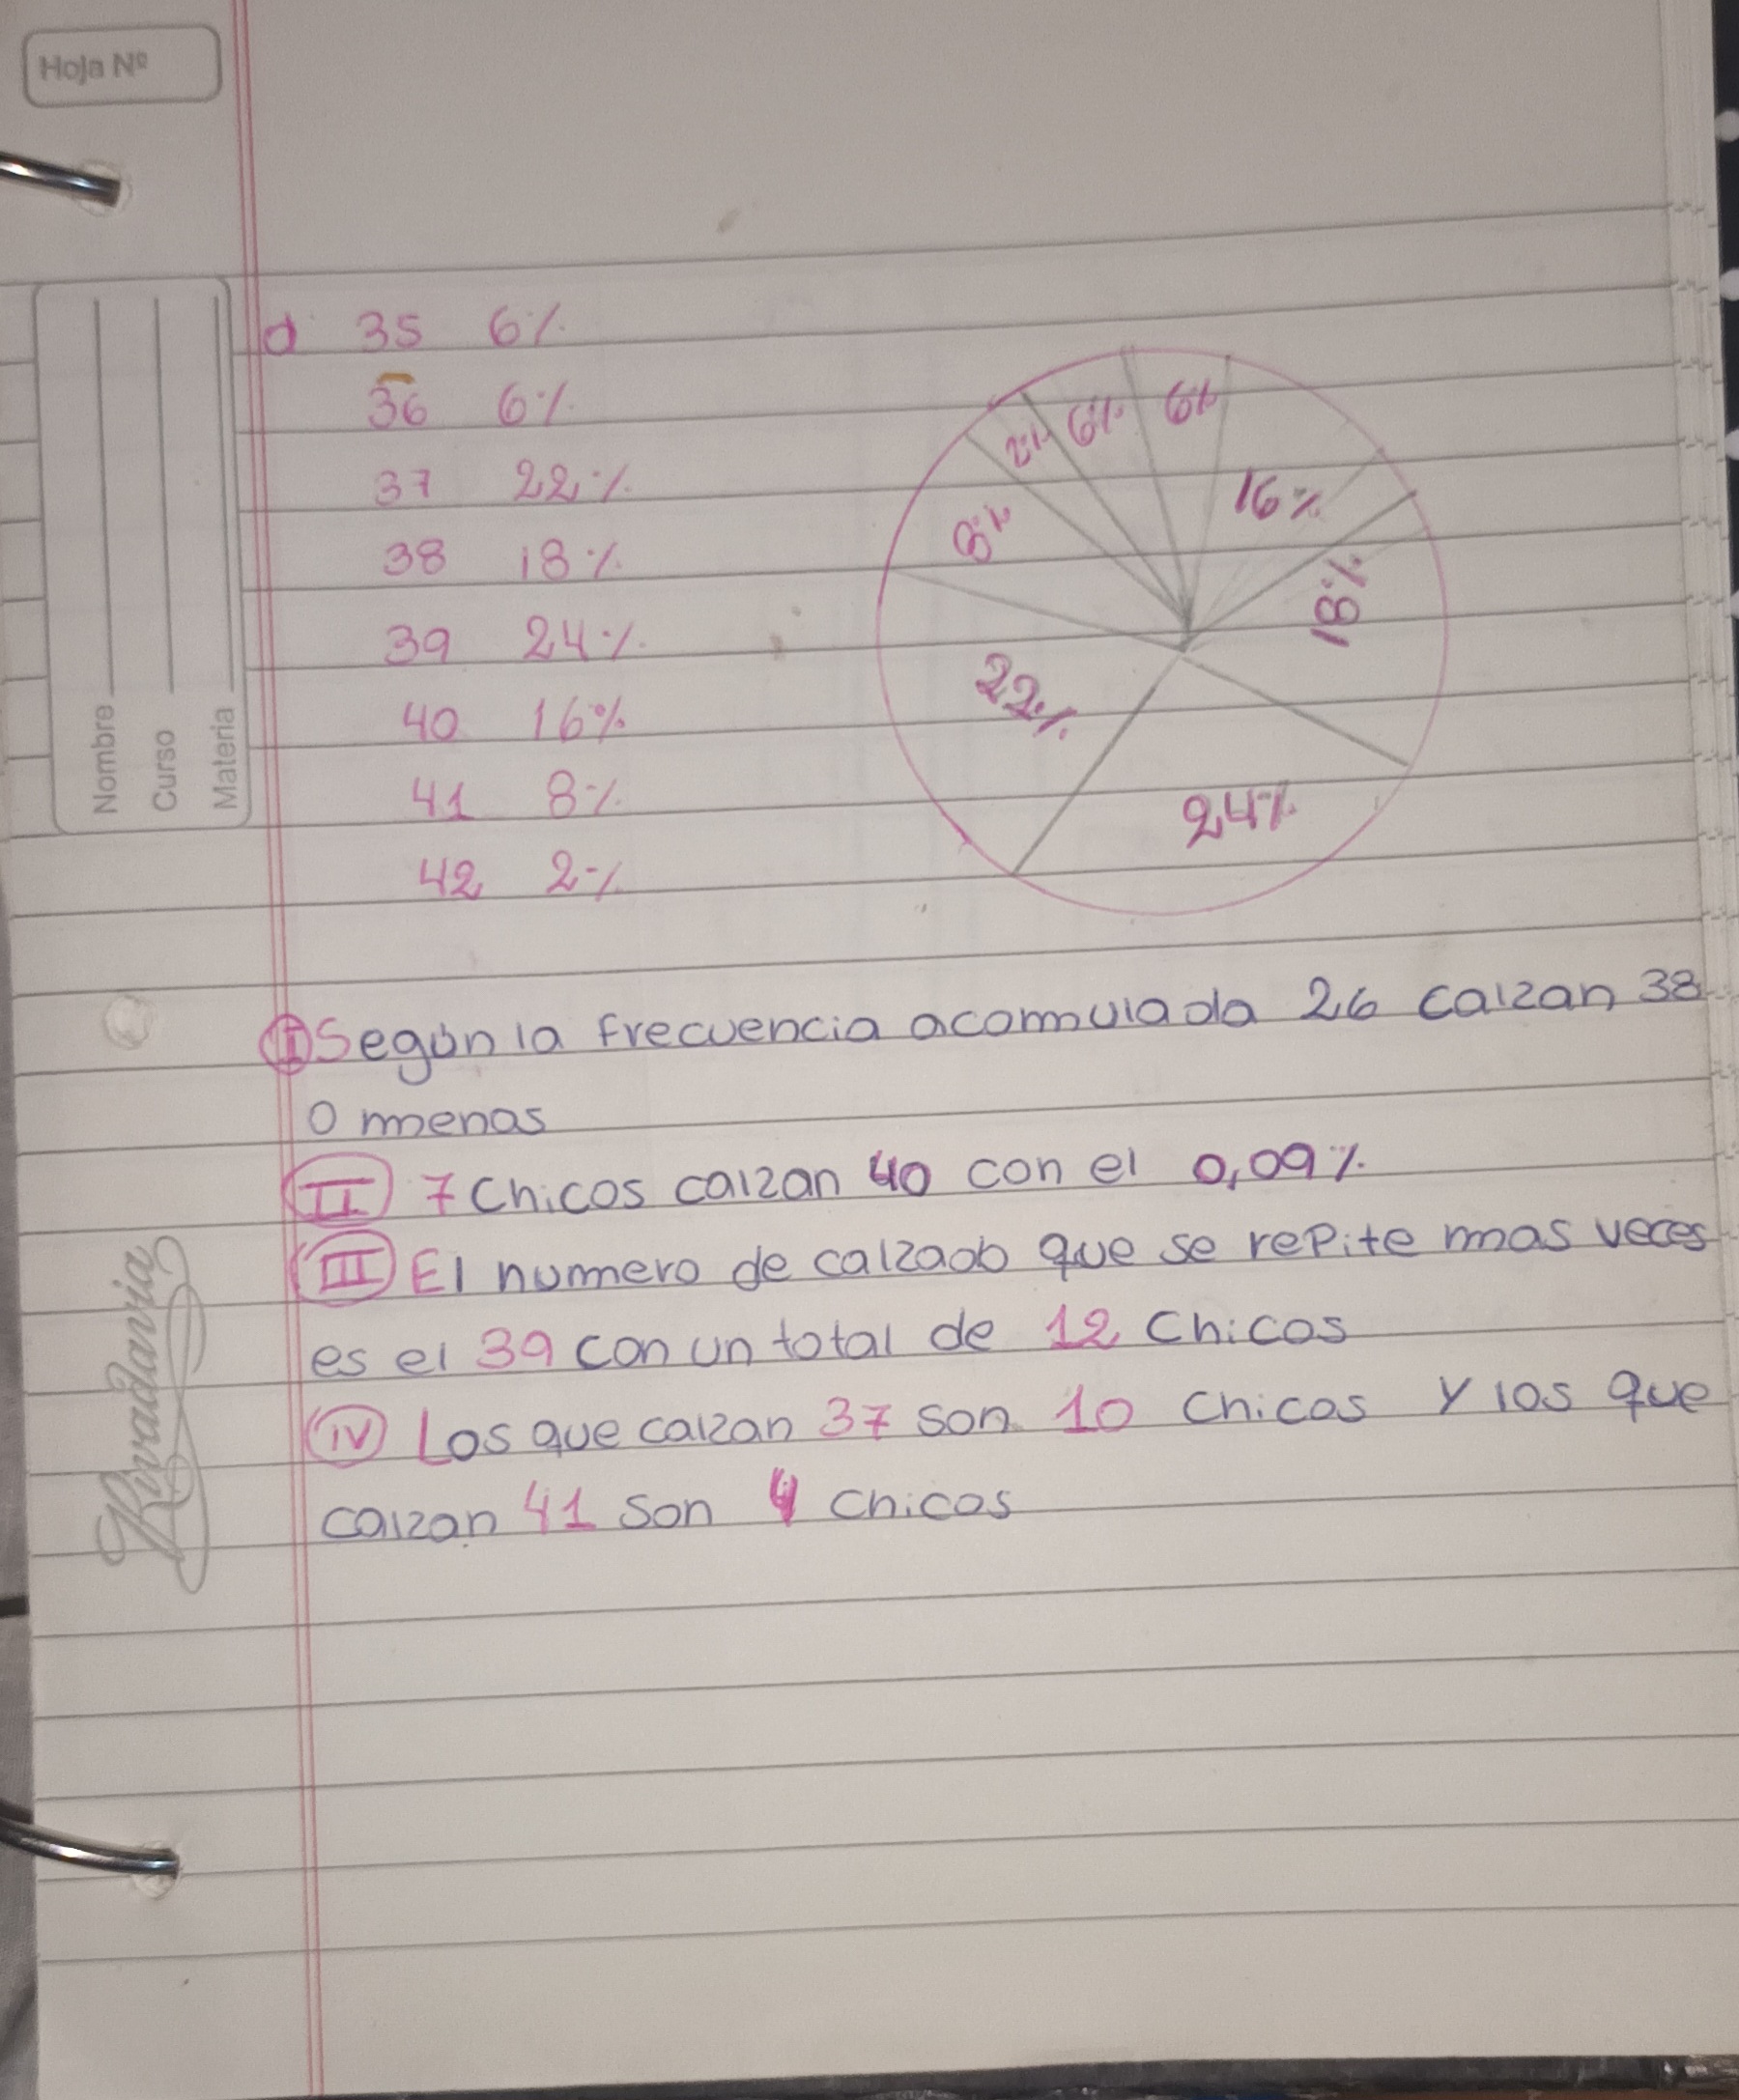 Hoja Nº
Nombre
Curso
Materia
d 35 6%
36 6%
37 22%
38 18%
39 24%
40 16%
41 8%
42 2%
2%
6%
6%
16%
8%
18%
22%
24%
I Según la frecuencia acomulada 26 calzan 38
o menos
II 7 chicos calzan 40 con el 0,09%
III El numero de calzado que se repite mas veces
es el 39 con un total de 12 chicos
IV Los que calzan 37 son 10 chicos y los que
calzan 41 son 4 chicos
Rivadavia